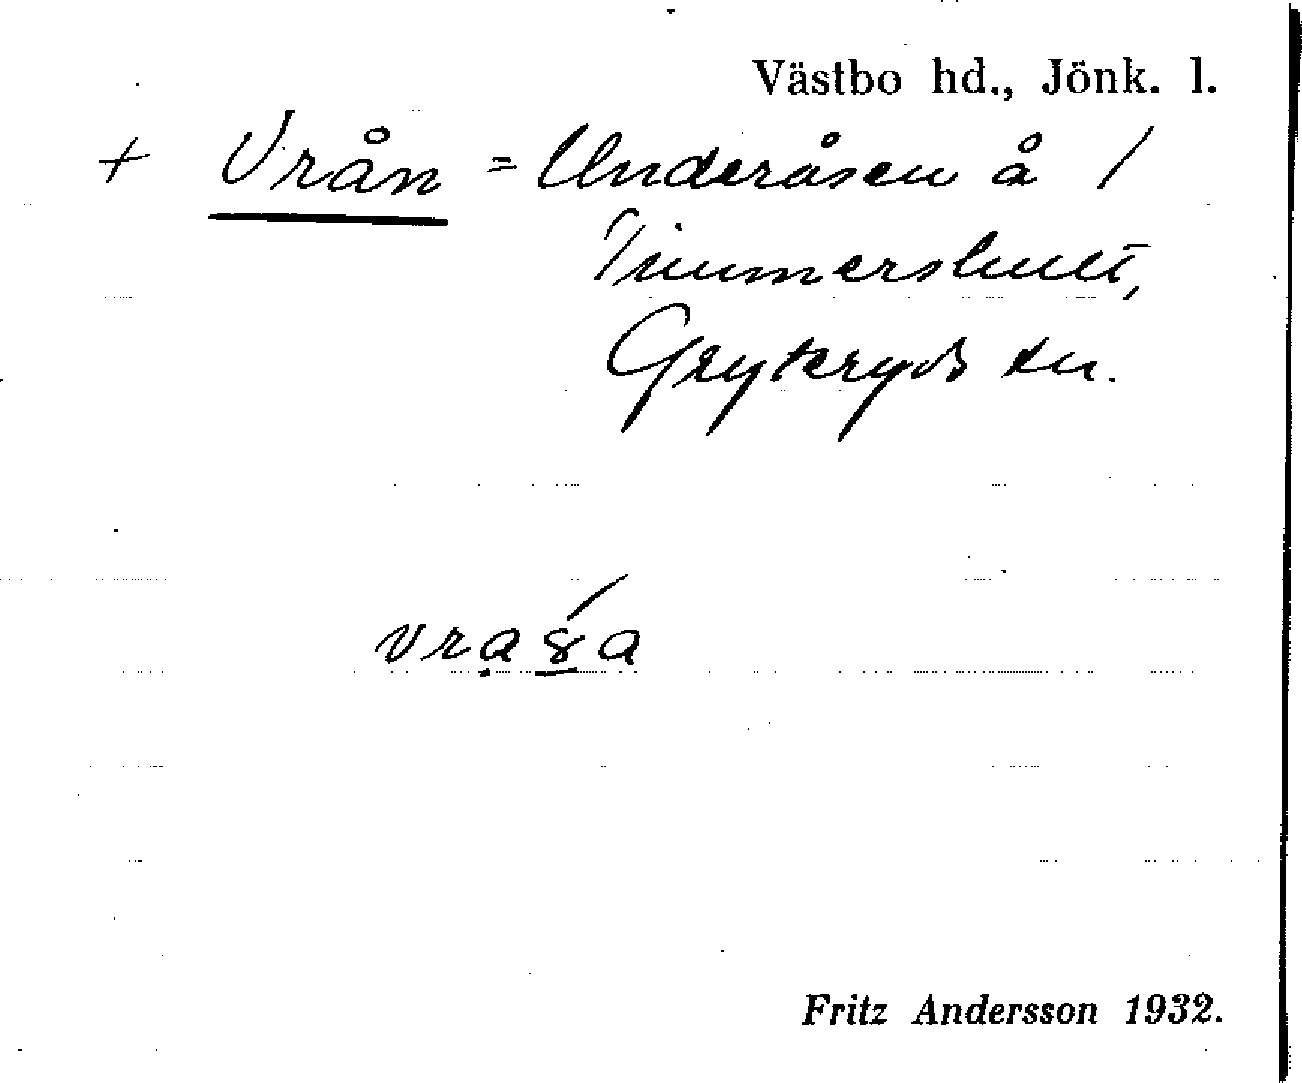 Västbo hd., Jönk. l.
+ Vrån = Underåsen å /
Timmershult,
Gryteryds sn.
Fritz Andersson 1932.